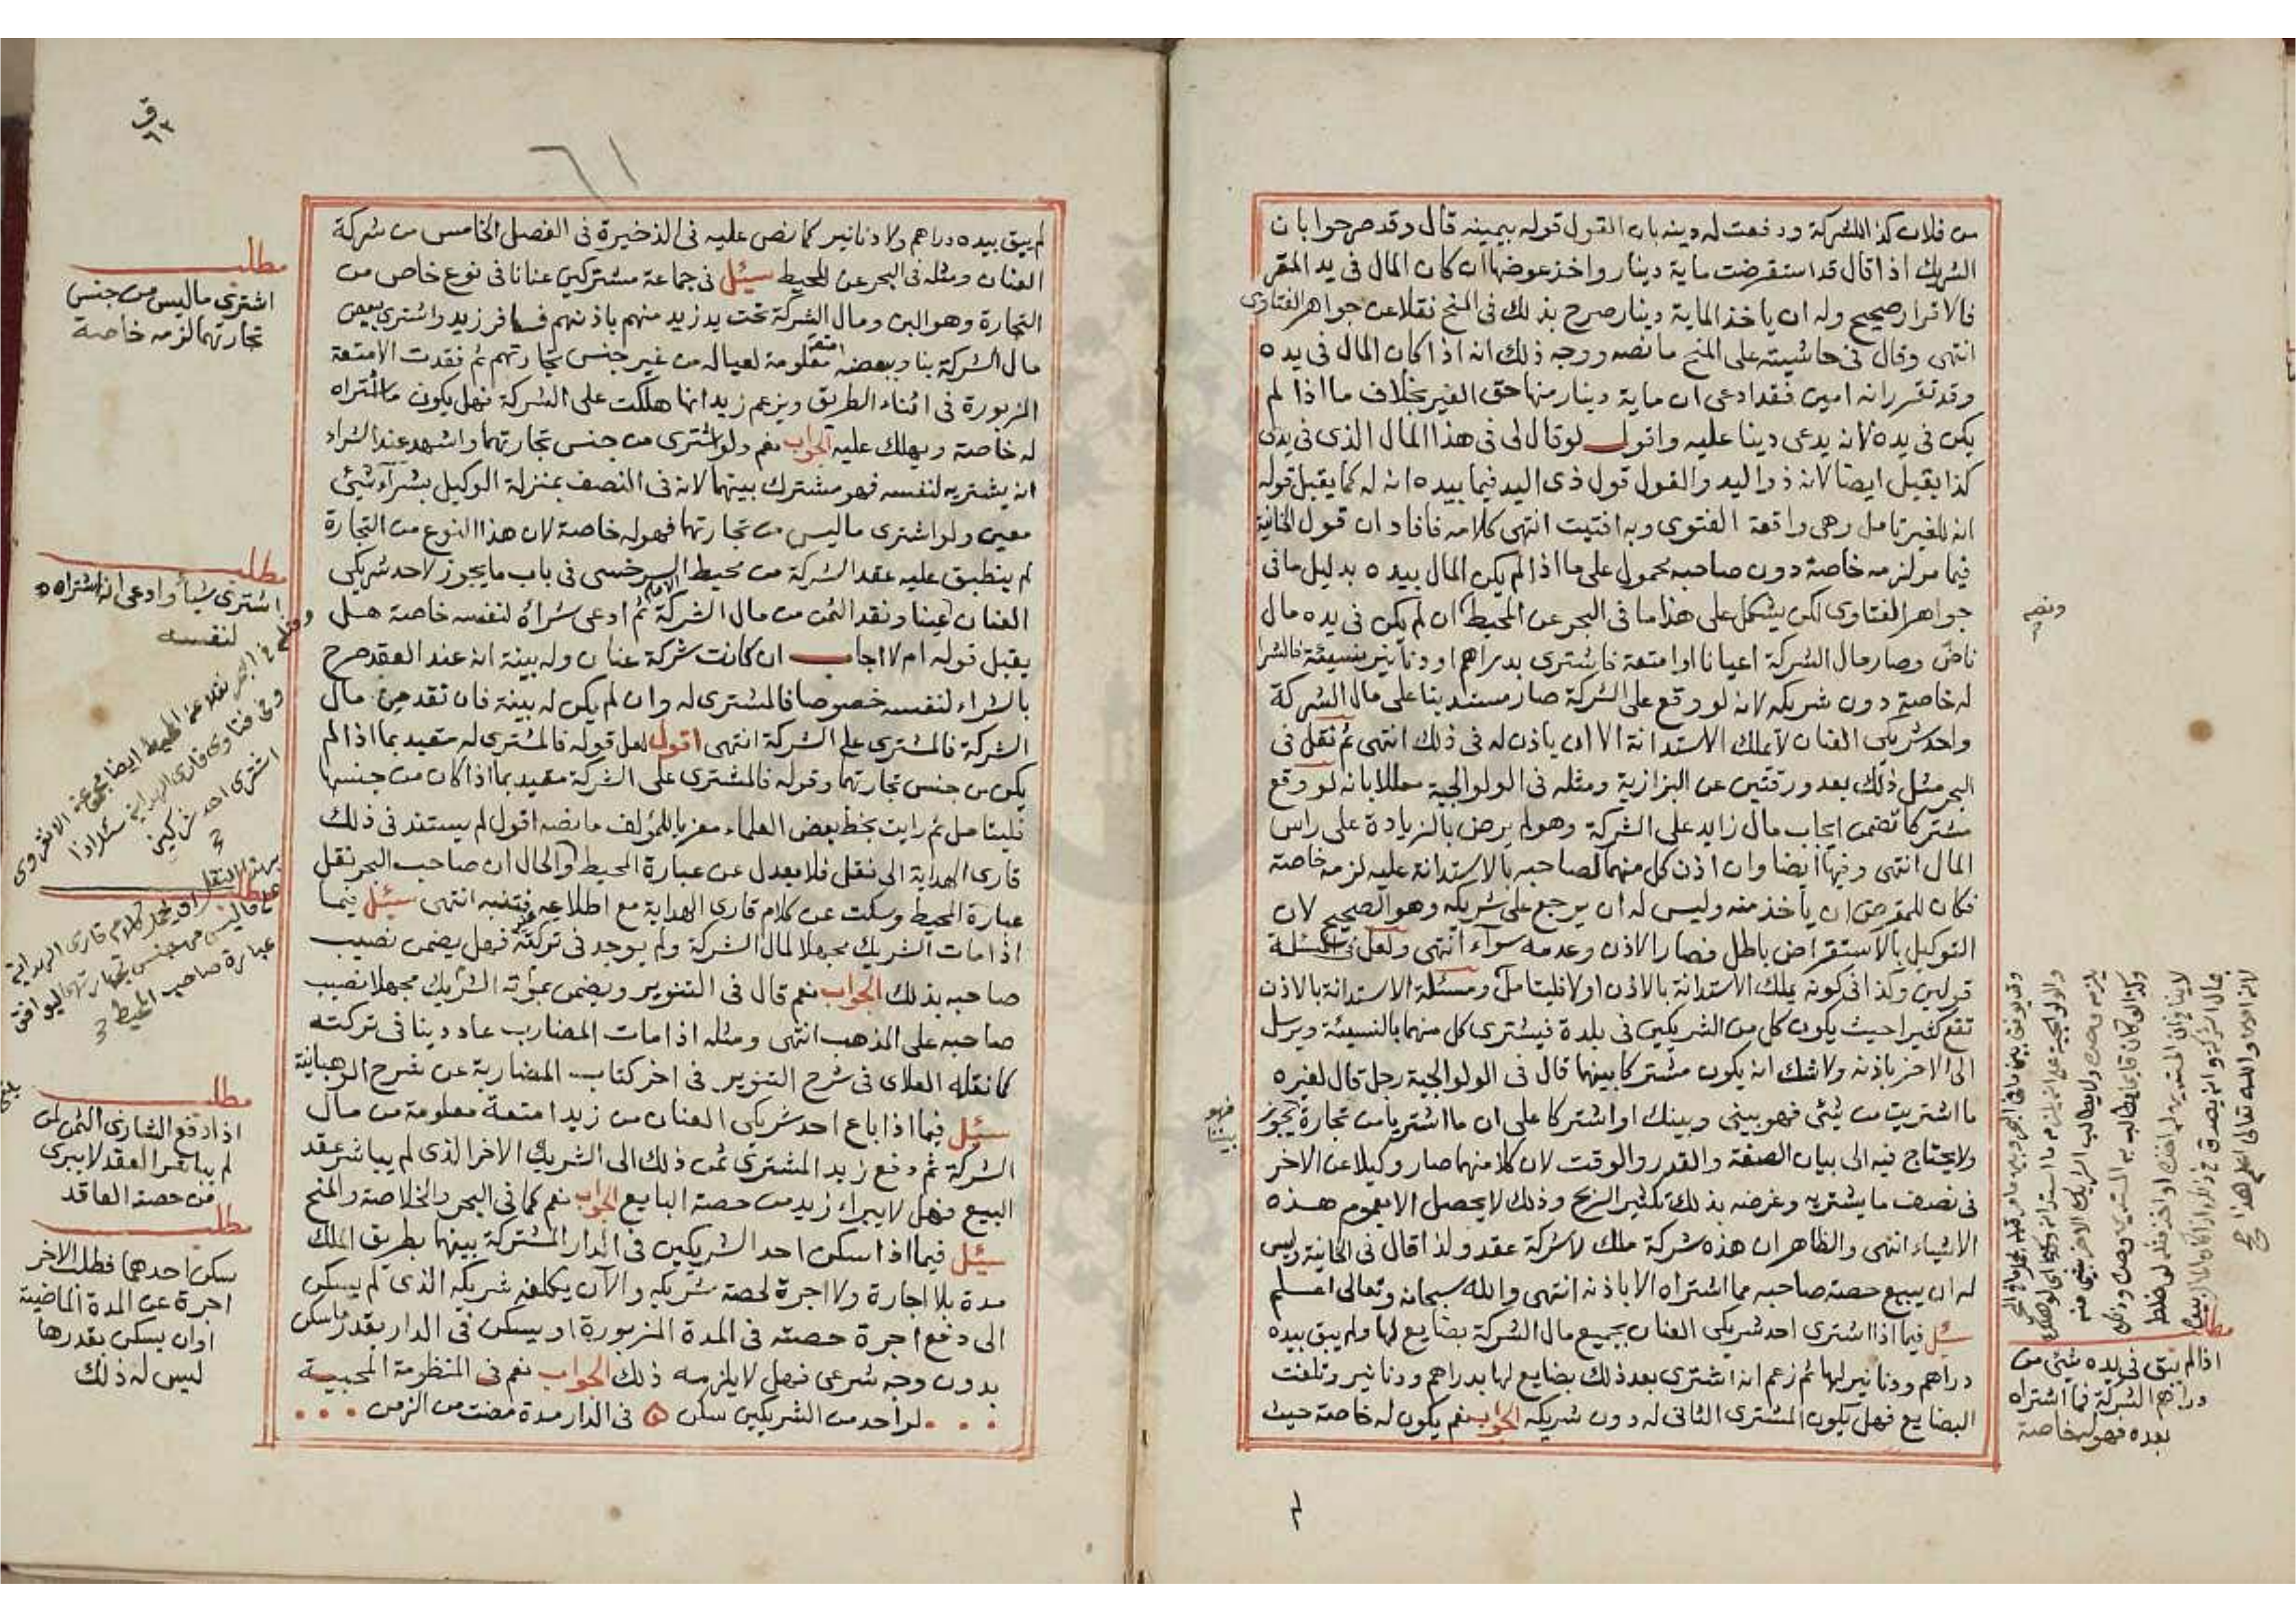 من فلان كذا للشركة ودفعت له دينه بان القول قوله بيمينه قال وقد صرحوا بان
الشريك اذا قال قد استقرضت ماية دينار واخذ عوضها ان كان المال فى يد المقر
فالاقرار صحيح وله ان ياخذ الماية دينار صرح بذلك فى المنح نقلا عن جواهر الفتاوى
انتهى وقال فى حاشيته على المنح ما نصه ووجه ذلك انه اذا كان المال فى يده
وقد تقرر انه امين فقد ادعى ان ماية دينار منها حق الغير بخلاف ما اذا لم
يكن فى يده لانه يدعى دينا عليه واقول لو قال لى فى هذا المال الذى فى يدى
كذا يقبل ايضا لانه ذو اليد والقول قول ذى اليد فيما بيده انه له كما يقبل قوله
انه للغير تامل وهى واقعة الفتوى وبه افتيت انتهى كلامه فافاد ان قول الخانية
فيما مر لزمه خاصة دون صاحبه محمول على ما اذا لم يكن المال بيده بدليل ما فى
جواهر الفتاوى لكن يشكل على هذا ما فى البحر عن المحيط ان لم يكن فى يده مال
ناض وصار مال الشركة اعيانا او امتعة فاشترى بدراهم او دنانير بنسيئة فالشرا
له خاصة دون شريكه لانه لو وقع على الشركة صار مستدينا على مال الشركة
واحد شريكى العنان لا يملك الاستدانة الا ان ياذن له فى ذلك انتهى ثم نقل فى
البحر مثل ذلك بعد ورقتين عن البزازية ومثله فى الولوالجية معللا بانه لو وقع
مشتركا تضمن ايجاب مال زايد على الشركة وهو لم يرض بالزيادة على راس
المال انتهى وفيها ايضا وان اذن كل منهما لصاحبه بالاستدانة عليه لزمه خاصة
فكان للمقرض ان يأخذ منه وليس له ان يرجع على شريكه وهو الصحيح لان
التوكيل بالاستقراض باطل فصار الاذن وعدمه سواء انتهى ولعل فى المسئلة
قولين وكذا فى كونه يملك الاستدانة بالاذن او لا فليتامل ومسئلة الاستدانة بالاذن
تقع كثيرا حيث يكون كل من الشريكين فى بلدة فيشترى كل منهما بالنسيئة ويرسل
الى الاخر باذنه ولا شك انه يكون مشتركا بينهما قال فى الولوالجية رجل قال لغيره
ما اشتريت من شيئ فهو بينى وبينك او اشتركا على ان ما اشتريا من تجارة يجوز
ولا يحتاج فيه الى بيان الصفة والقدر والوقت لان كلا منهما صار وكيلا عن الاخر
فى نصف ما يشتريه وغرضه بذلك تكثير الربح وذلك لا يحصل الا بعموم هذه
الاشياء انتهى والظاهر ان هذه شركة ملك لا شركة عقد ولذا قال فى الخانية وليس
له ان يبيع حصة صاحبه مما اشتراه الا باذنه انتهى والله سبحانه وتعالى اعلم
سئل فيما اذا اشترى احد شريكى العنان بجميع مال الشركة بضايع لها ولم يبق بيده
دراهم ودنانير لها ثم زعم انه اشترى بعد ذلك بضايع لها بدراهم ودنانير وتلفت
البضايع فهل يكون المشترى الثانى له دون شريكه الجواب نعم يكون له خاصة حيث
ونصه
فهو بيننا
مطلب
اذا لم يبق فى يده شيئ من
دراهم الشركة فما اشتراه
بعده فهو له خاصة
ق ٦٣
٦١
لم يبق بيده دراهم ولا دنانير كما نص عليه فى الذخيرة فى الفصل الخامس من شركة
العنان ومثله فى البحر عن المحيط سئل فى جماعة مشتركين عنانا فى نوع خاص من
التجارة وهو البن ومال الشركة تحت يد زيد منهم باذنهم فسافر زيد واشترى ببعض
مال الشركة بنا وببعضه امتعة معلومة لعياله من غير جنس تجارتهم ثم فقدت الامتعة
المزبورة فى اثناء الطريق ويزعم زيد انها هلكت على الشركة فهل يكون ما اشتراه
له خاصة ويهلك عليه الجواب نعم ولو اشترى من جنس تجارتهما واشهد عند الشراء
انه يشتريه لنفسه فهو مشترك بينهما لانه فى النصف بمنزلة الوكيل بشراء شيئ
معين ولو اشترى ما ليس من تجارتهما فهو له خاصة لان هذا النوع من التجارة
لم ينطبق عليه عقد الشركة من محيط السرخسى فى باب ما يجوز لاحد شريكى
العنان عينا ونقد الثمن من مال الشركة ثم ادعى شراه لنفسه خاصة هل
يقبل قوله ام لا اجاب ان كانت شركة عنان وله بينة انه عند العقد صرح
بالشراء لنفسه خصوصا فالمشترى له وان لم يكن له بينة فان نقد من مال
الشركة فالمشترى على الشركة انتهى اقول لعل قوله فالمشترى له مقيد بما اذا لم
يكن من جنس تجارتهما وقوله فالمشترى على الشركة مقيد بما اذا كان من جنسها
فليتامل ثم رايت بخط بعض العلماء معزيا للمؤلف ما نصه اقول لم يستند فى ذلك
قارى الهداية الى نقل فلا يعدل عن عبارة المحيط والحال ان صاحب البحر نقل
عبارة المحيط وسكت عن كلام قارى الهداية مع اطلاعه فتنبه انتهى سئل فيما
اذا مات الشريك مجهلا لمال الشركة ولم يوجد فى تركته فهل يضمن نصيب
صاحبه بذلك الجواب نعم قال فى التنوير ويضمن بموته الشريك مجهلا نصيب
صاحبه على المذهب انتهى ومثله اذا مات المضارب عاد دينا فى تركته
كما نقله العلاى فى شرح التنوير فى اخر كتاب المضاربة عن شرح الوهبانية
سئل فيما اذا باع احد شريكى العنان من زيد امتعة معلومة من مال
الشركة ثم دفع زيد المشترى ثمن ذلك الى الشريك الاخر الذى لم يباشر عقد
البيع فهل لا يبراء زيد من حصة البايع الجواب نعم كما فى البحر والخلاصة والمنح
سئل فيما اذا سكن احد الشريكين فى الدار المشتركة بينهما بطريق الملك
مدة بلا اجارة ولا اجرة لحصة شريكه والآن يكلفه شريكه الذى لم يسكن
الى دفع اجرة حصته فى المدة المزبورة او يسكن فى الدار بقدر ما سكن
بدون وجه شرعى فهل لا يلزمه ذلك الجواب نعم فى المنظومة المحبية
لو احد من الشريكين سكن ۞ فى الدار مدة مضت من الزمن
مطلب
اشترى ما ليس من جنس
تجارتهما لزمه خاصة
مطلب
اشترى شيأ وادعى انه اشتراه
لنفسه
وفى فتاوى قارى الهداية سئل اذا
اشترى احد شريكين
مطلب
اذا دفع الشارى الثمن لمن
لم يباشر العقد لا يبرى
من حصة العاقد
مطلب
سكن احدهما فطلب الاخر
اجرة عن المدة الماضية
او ان يسكن بقدرها
ليس له ذلك